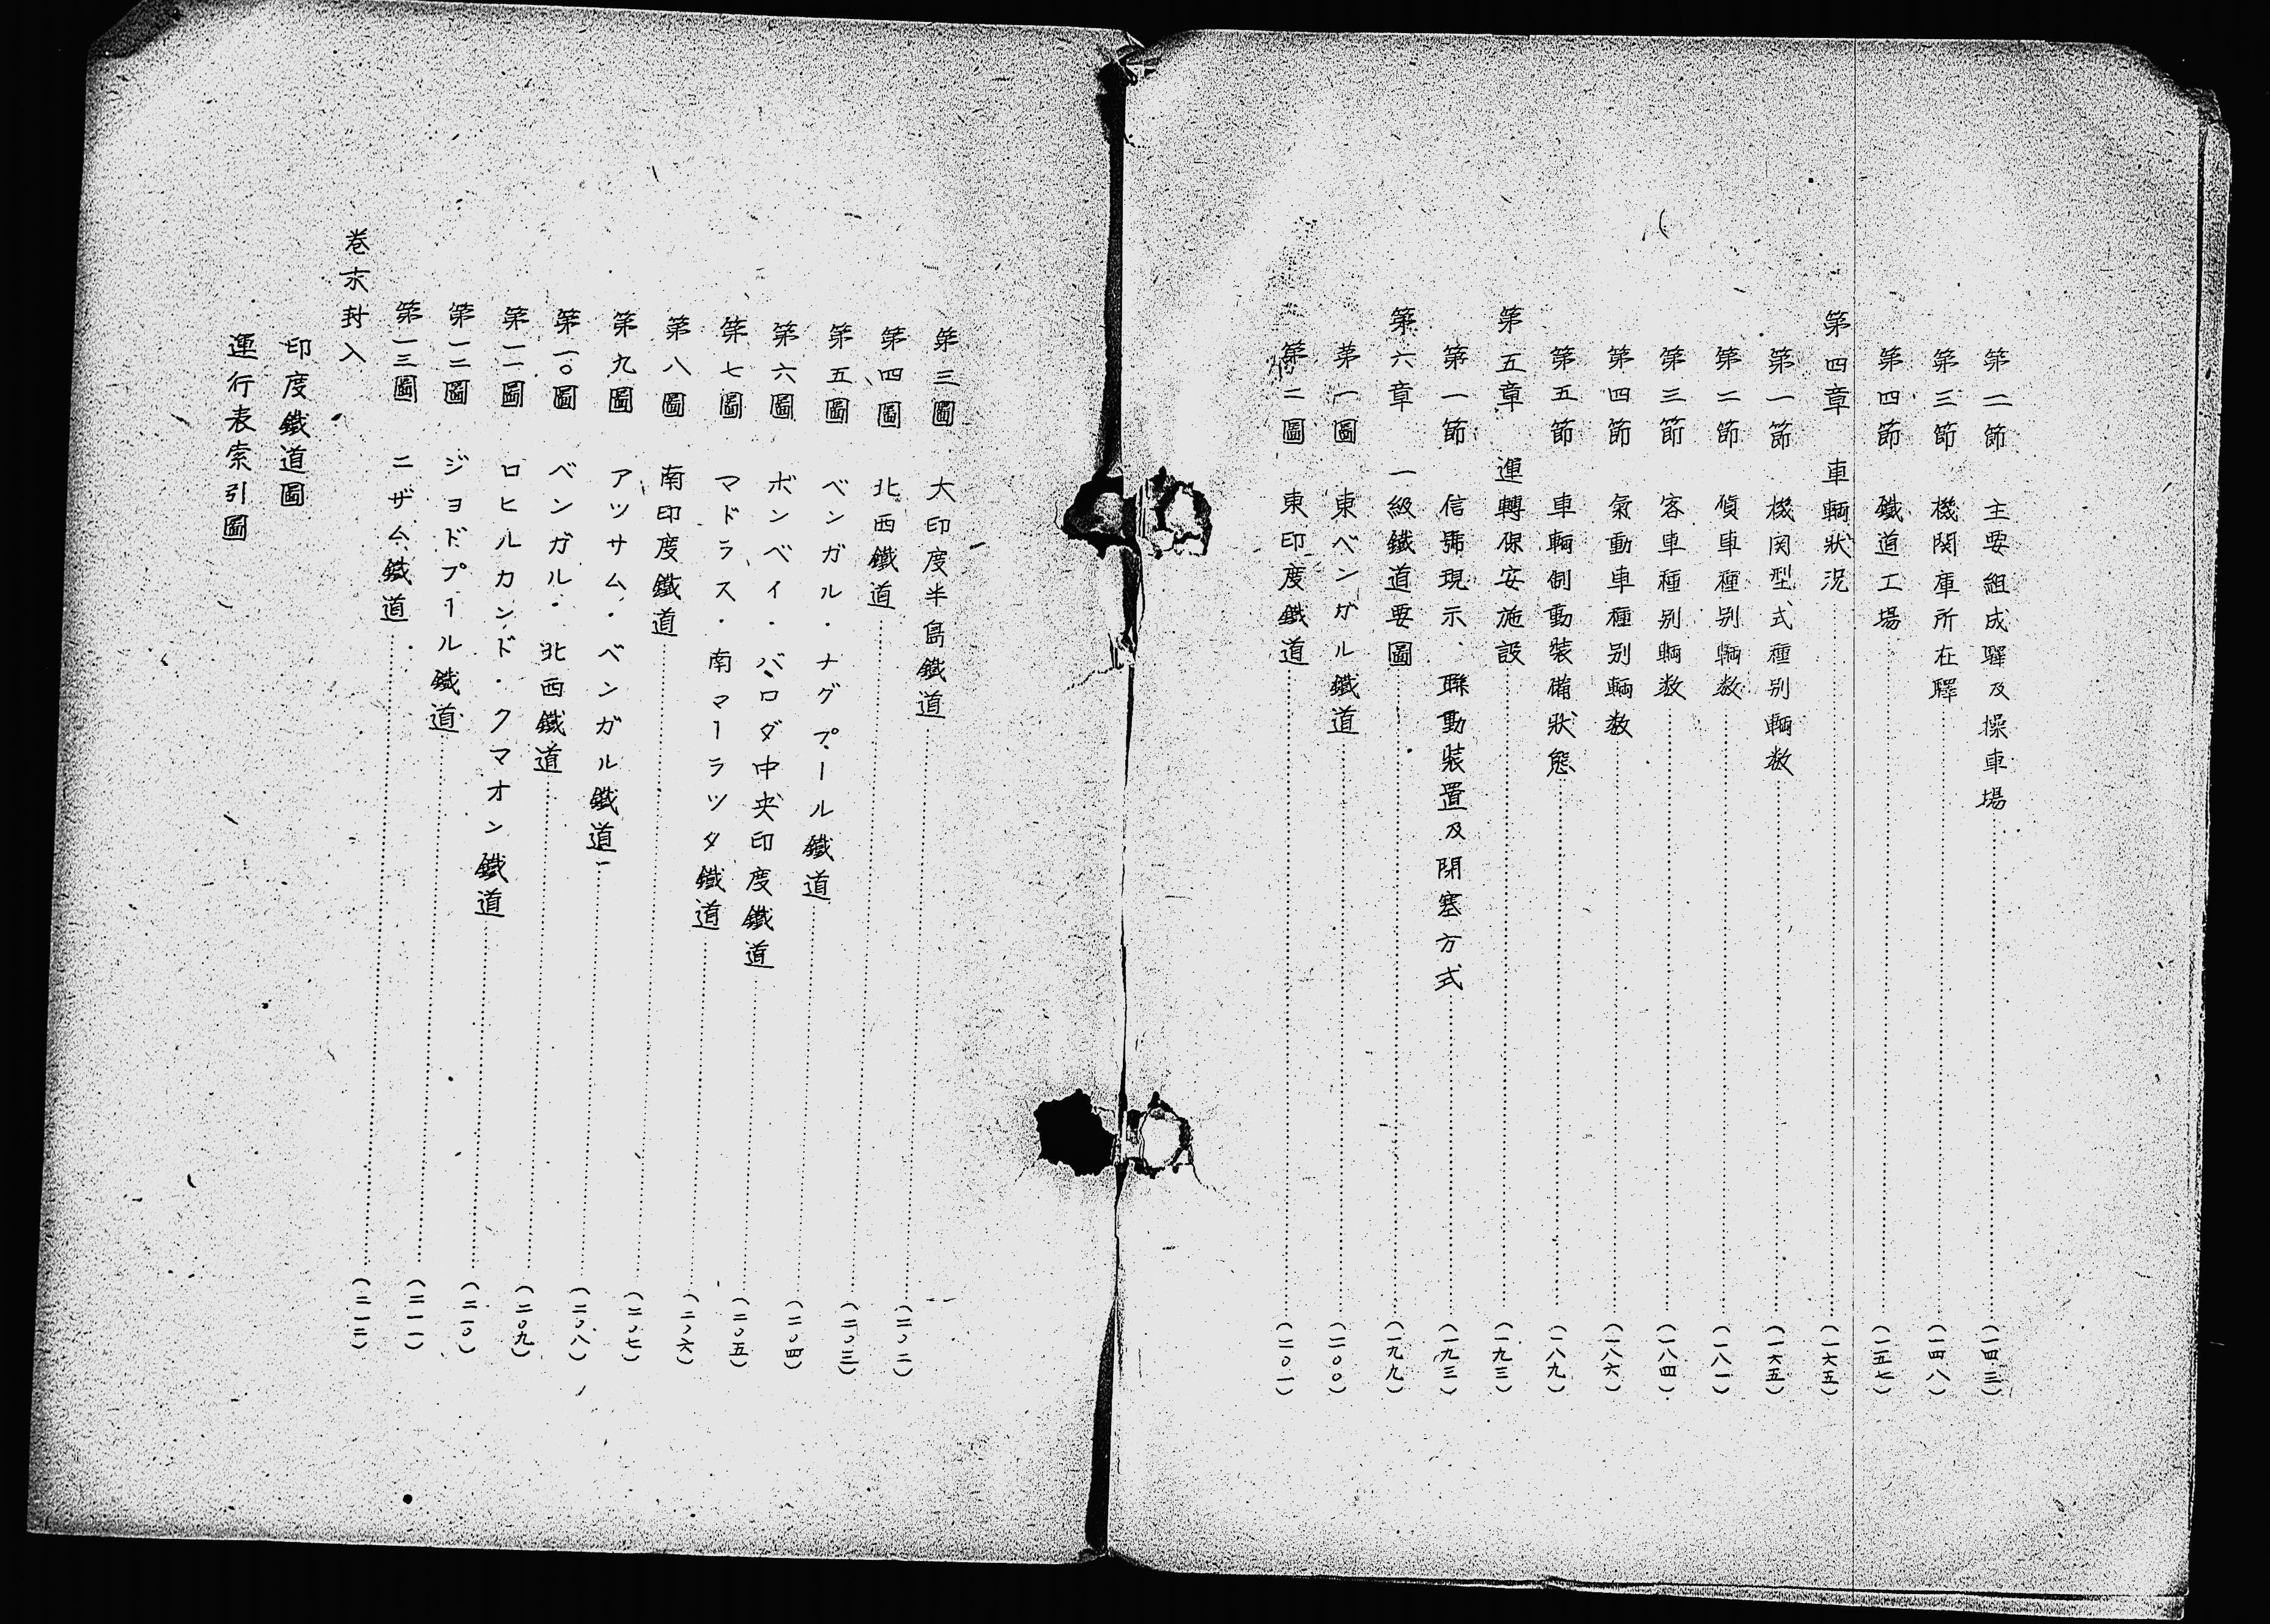 第二節 主要組成驛及操車場………(一四三)
第三節 機関庫所在驛………(一四八)
第四節 鐵道工場………(一五七)
第四章 車輛狀況………(一六五)
第一節 機関型式種别輛数………(一六五)
第二節 貨車種别輛数………(一八一)
第三節 客車種别輛数………(一八四)
第四節 氣動車種别輛数………(一八六)
第五節 車輛制動裝備狀態………(一八九)
第五章 運轉保安施設………(一九三)
第一節 信號現示、聯動裝置及閉塞方式………(一九三)
第六章 一級鐵道要圖………(一九九)
第一圖 東ベンガル鐵道………(二〇〇)
第二圖 東印度鐵道………(二〇一)
第三圖 大印度半島鐵道………(二〇二)
第四圖 北西鐵道………(二〇三)
第五圖 ベンガル・ナグプール鐵道………(二〇四)
第六圖 ボンベイ・バロダ中央印度鐵道………(二〇五)
第七圖 マドラス・南マーラッタ鐵道………(二〇六)
第八圖 南印度鐵道………(二〇七)
第九圖 アッサム・ベンガル鐵道………(二〇八)
第一〇圖 ベンガル・北西鐵道………(二〇九)
第一一圖 ロヒルカンド・クマオン鐵道………(二一〇)
第一二圖 ジョドプール鐵道………(二一一)
第一三圖 ニザム鐵道………(二一二)
巻末封入
印度鐵道圖
運行表索引圖